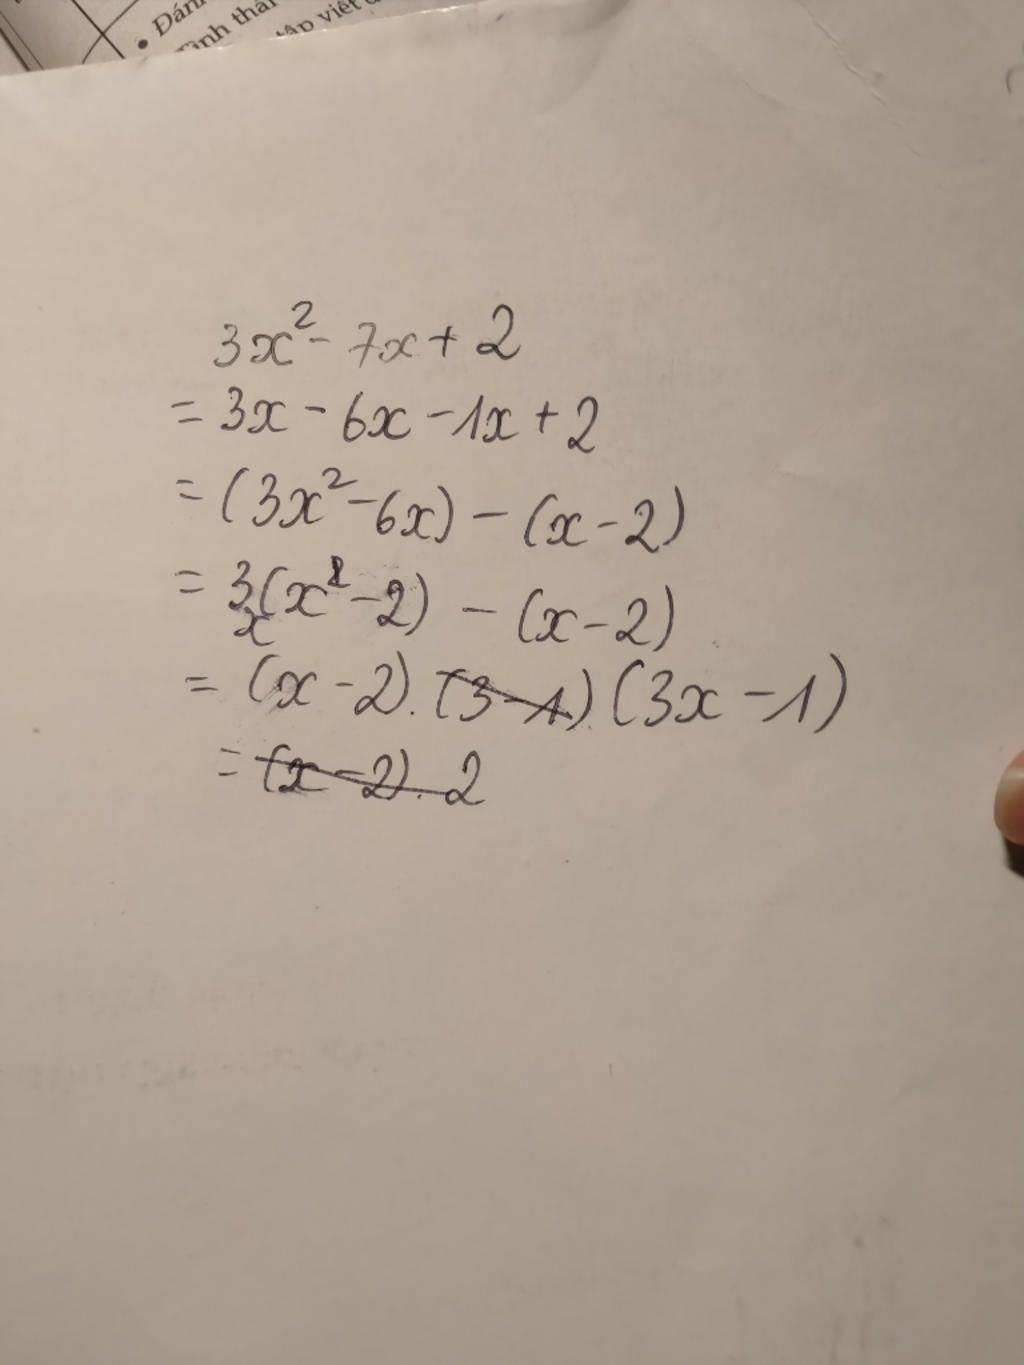 • Đán
tập viết
3x² - 7x + 2
= 3x - 6x - 1x + 2
= (3x² - 6x) - (x - 2)
= 3x(x - 2) - (x - 2)
= (x - 2). (3 - 1) (3x - 1)
= (x - 2). 2